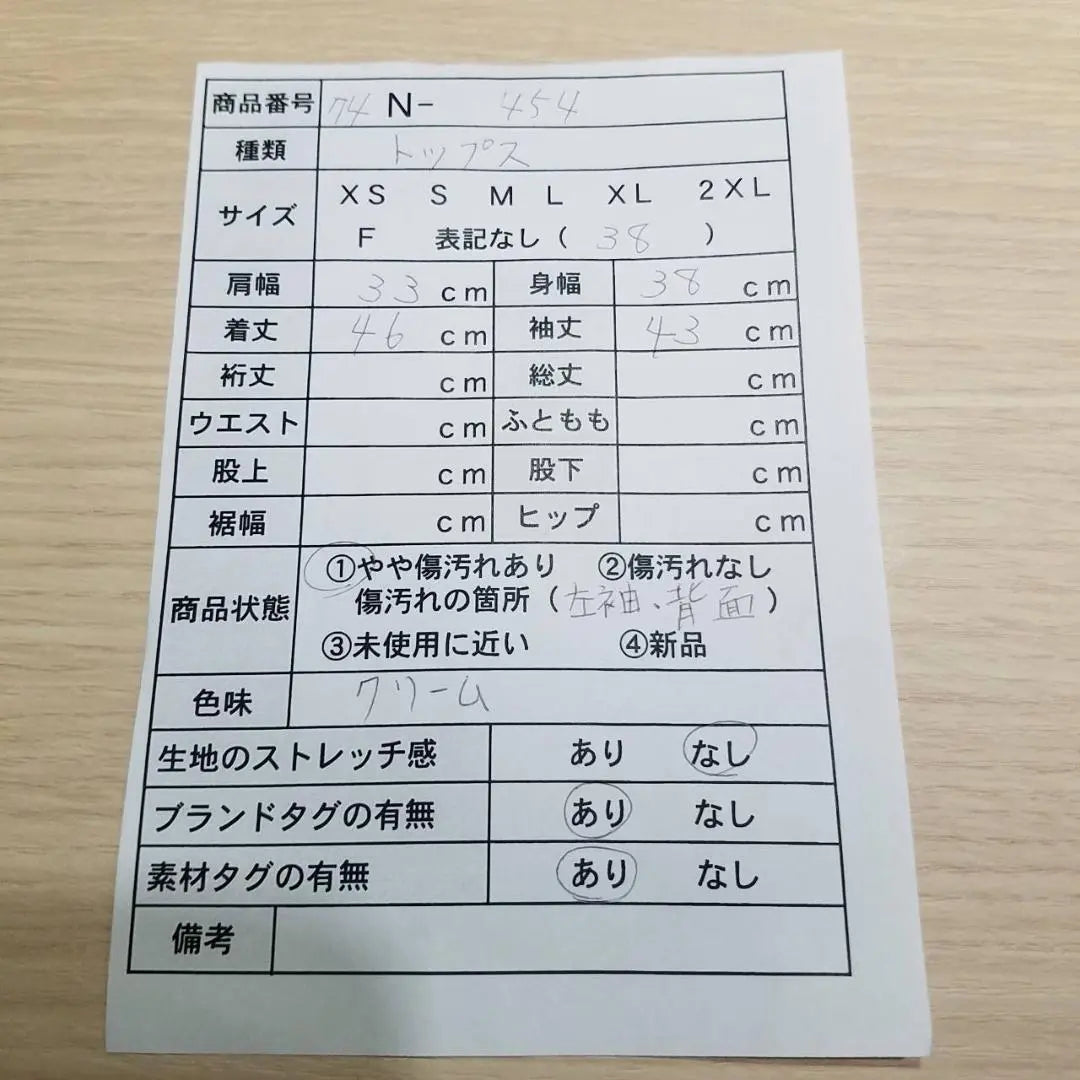 商品番号 74 N- 454
種類 トップス
サイズ XS S M L XL 2XL
F 表記なし ( 38 )
肩幅 33 cm 身幅 38 cm
着丈 46 cm 袖丈 43 cm
裄丈 cm 総丈 cm
ウエスト cm ふともも cm
股上 cm 股下 cm
裾幅 cm ヒップ cm
商品状態 ①やや傷汚れあり ②傷汚れなし
傷汚れの箇所 (左袖、背面)
③未使用に近い ④新品
色味 クリーム
生地のストレッチ感 あり なし
ブランドタグの有無 あり なし
素材タグの有無 あり なし
備考